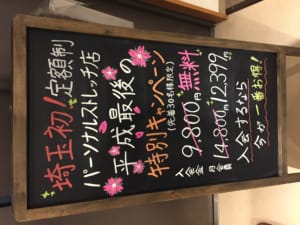 埼玉初!定額制
パーソナルストレッチ店
平成最後の
特別キャンペーン
(先着30名様限定)
入会金 9,800円 無料
月会費 14,800円 12,399円
入会するなら
今が一番お得!